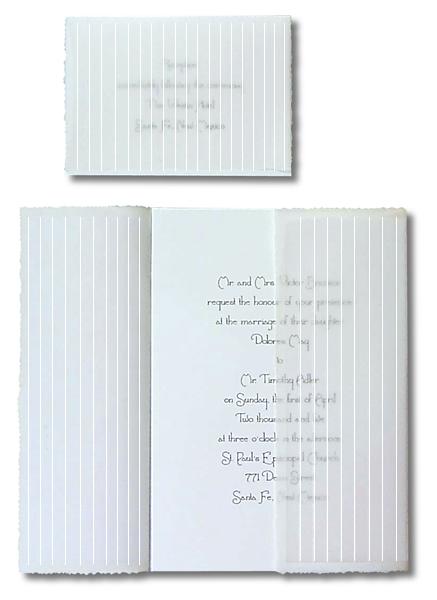 Reception
immediately following the ceremony
Santa Fe, New Mexico
Mr. and Mrs.
request the honour of your presence
at the marriage of their daughter
Dolores May
to
Mr. Timothy Adler
on Sunday, the first of April
Two thousand and
at three o'clock in the afternoon
St. Paul's Episcopal Church
771 Street
Santa Fe, New Mexico